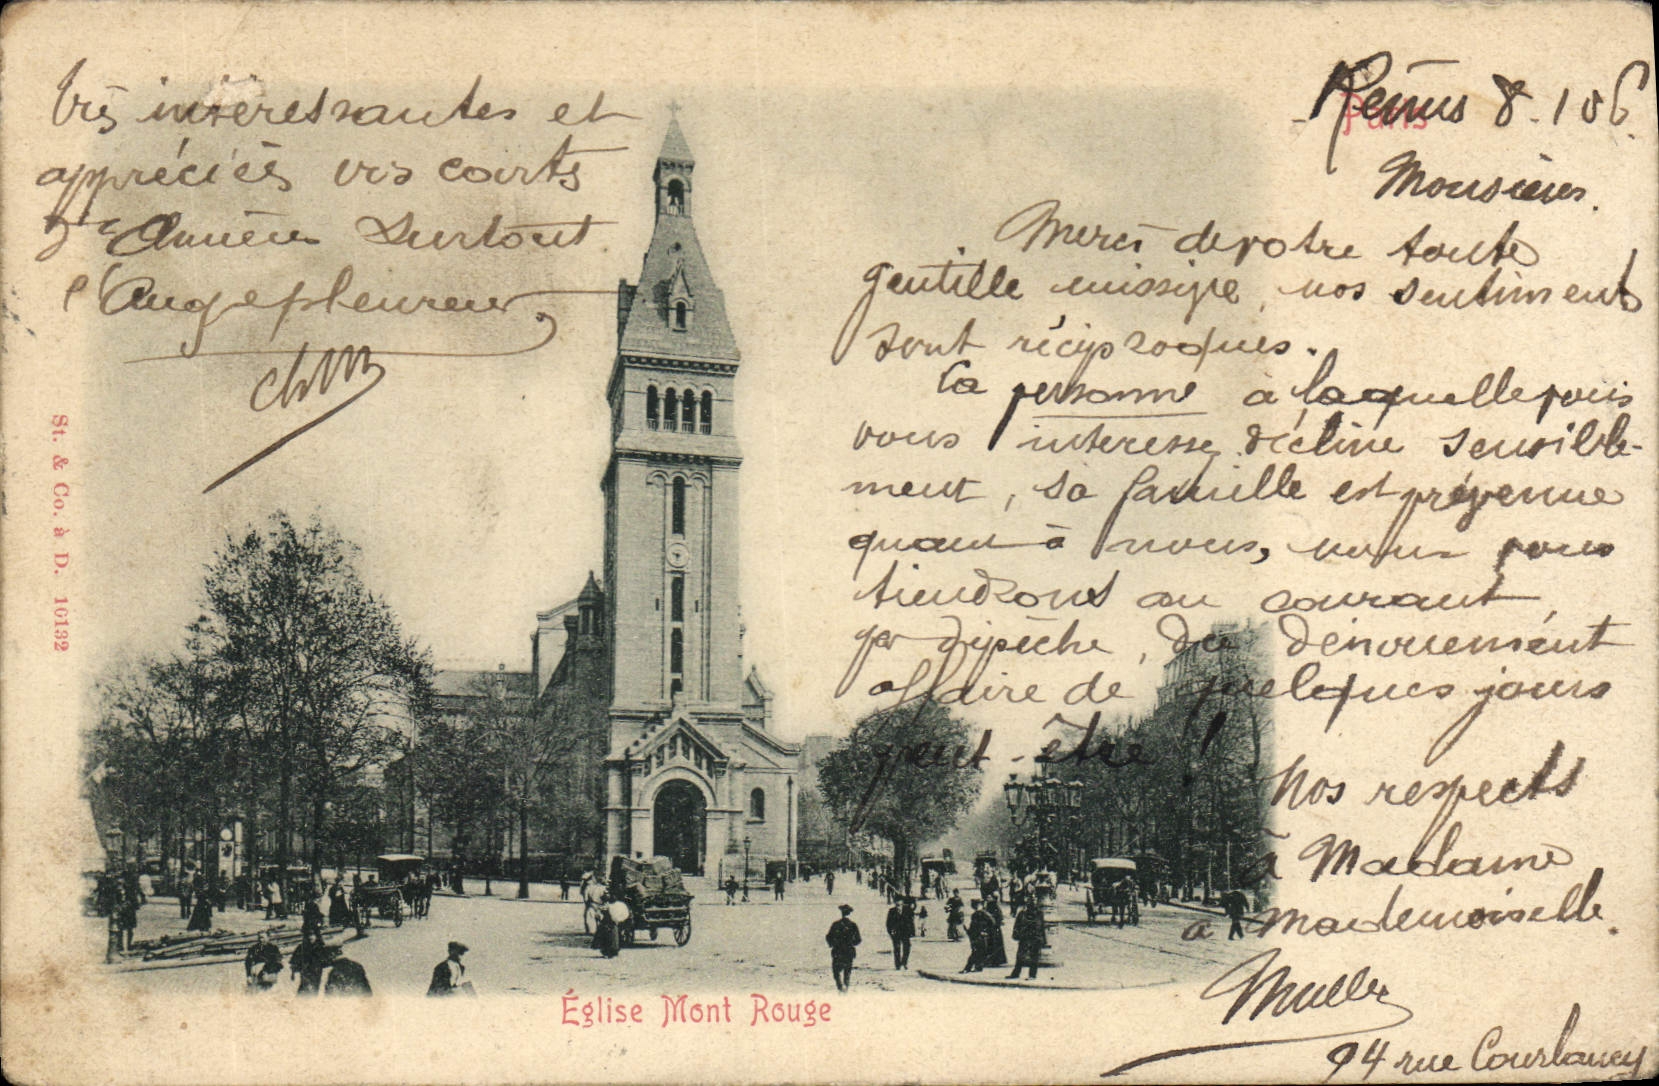 Reims 8.1 06.
Paris
Monsieur.
Merci de votre toute
gentille missive, nos sentiments
sont réciproques.
La personne à laquelle vous
vous interesse décline sensible-
ment, sa famille est prévenue
quant à nous, nous vous
tiendrons au courant,
par dépêche, du dénouement
affaire de quelques jours
peut-être !
Nos respects
à Madame
à Mademoiselle.
Muller
94 rue Courlancy
très interessantes et
appréciés vos cartes
Année Surtout
l'Ange pleureur,
ChM
Église Mont Rouge
St. & Co. à D. 10132